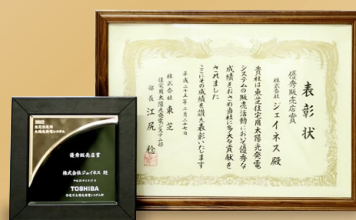 表彰状
優秀販売店賞
株式会社 ジェイネス 殿
貴社は東芝住宅用太陽光発電
システムの販売活動において優秀な
成績をおさめ当社に多大な貢献を
されました
ここにその成績を讃え表彰いたします
平成二十五年二月二十七日
株式会社 東芝
住宅用太陽光発電システム部
部長 江尻 稔
優秀販売店賞
株式会社ジェイネス 殿
TOSHIBA